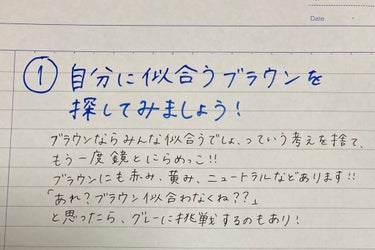 Date
① 自分に似合うブラウンを
探してみましょう!
ブラウンならみんな似合うでしょ、っていう考えを捨て、
もう一度鏡とにらめっこ!!
ブラウンにも赤み、黄み、ニュートラルなどあります!!
「あれ?ブラウン似合わなくね??」
と思ったら、グレーに挑戦するのもあり!